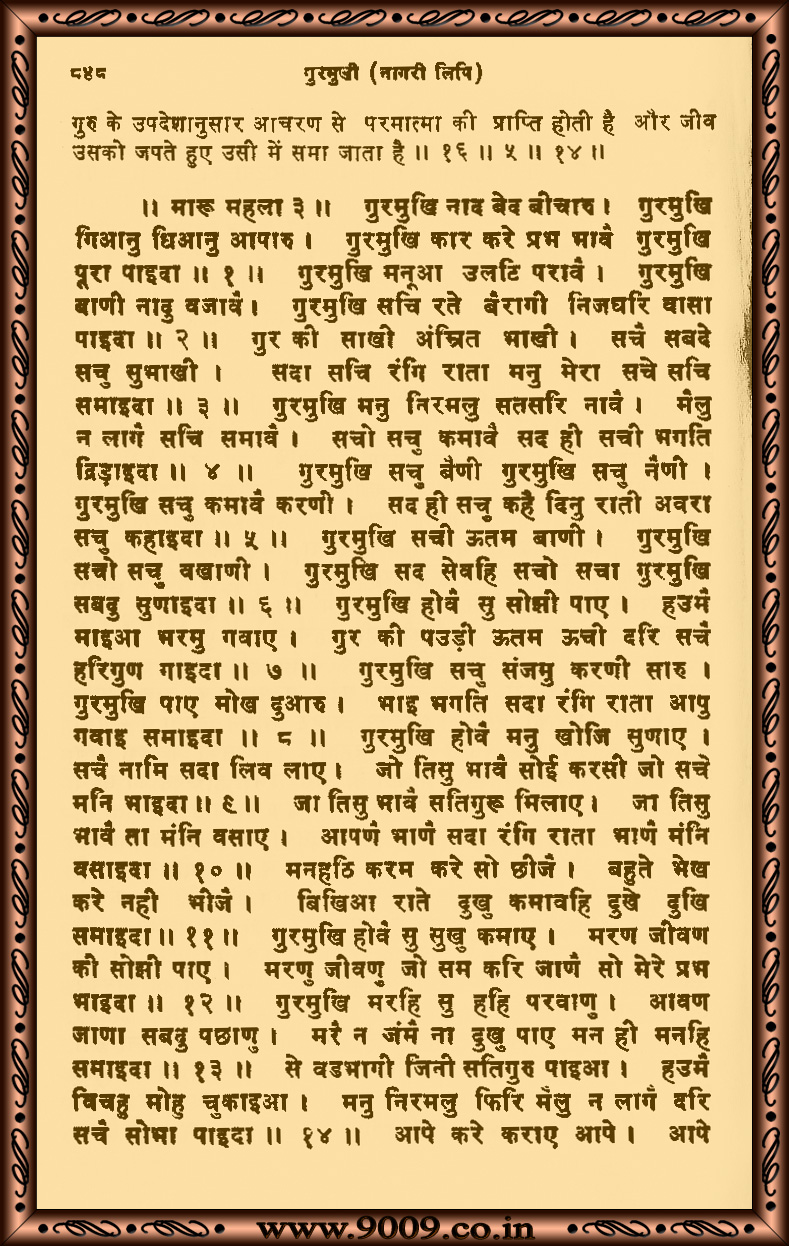 ८४८ गुरमुखी (नागरी लिपि)
गुरु के उपदेशानुसार आचरण से परमात्मा की प्राप्ति होती है और जीव
उसको जपते हुए उसी में समा जाता है ॥ १६ ॥ ५ ॥ १४ ॥
॥ मारू महला ३ ॥ गुरमुखि नाद बेद बीचारु । गुरमुखि
गिआनु धिआनु आपारु । गुरमुखि कार करे प्रभ भावै गुरमुखि
पूरा पाइदा ॥ १ ॥ गुरमुखि मनूआ उलटि परावै । गुरमुखि
बाणी नादु वजावै । गुरमुखि सचि रते बैरागी निजघरि वासा
पाइदा ॥ २ ॥ गुर की साखी अंम्रित भाखी । सचै सबदे
सचु सुभाखी । सदा सचि रंगि राता मनु मेरा सचे सचि
समाइदा ॥ ३ ॥ गुरमुखि मनु निरमलु सतसरि नावै । मैलु
न लागै सचि समावै । सचो सचु कमावै सद ही सची भगति
द्रिड़ाइदा ॥ ४ ॥ गुरमुखि सचु बैणी गुरमुखि सचु नैणी ।
गुरमुखि सचु कमावै करणी । सद ही सचु कहै दिनु राती अवरा
सचु कहाइदा ॥ ५ ॥ गुरमुखि सची ऊतम बाणी । गुरमुखि
सचो सचु वखाणी । गुरमुखि सद सेवहि सचो सचा गुरमुखि
सबदु सुणाइदा ॥ ६ ॥ गुरमुखि होवै सु सोझी पाए । हउमै
माइआ भरमु गवाए । गुर की पउड़ी ऊतम ऊची दरि सचै
हरिगुण गाइदा ॥ ७ ॥ गुरमुखि सचु संजमु करणी सारु ।
गुरमुखि पाए मोख दुआरु । भाइ भगति सदा रंगि राता आपु
गवाइ समाइदा ॥ ८ ॥ गुरमुखि होवै मनु खोजि सुणाए ।
सचै नामि सदा लिव लाए । जो तिसु भावै सोई करसी जो सचे
मनि भाइदा ॥ ९ ॥ जा तिसु भावै सतिगुरू मिलाए । जा तिसु
भावै ता मंनि वसाए । आपणै भाणै सदा रंगि राता भाणै मंनि
वसाइदा ॥ १० ॥ मनहठि करम करे सो छीजै । बहुते भेख
करे नही भीजै । बिखिआ राते दुखु कमावहि दुखे दुखि
समाइदा ॥ ११ ॥ गुरमुखि होवै सु सुखु कमाए । मरण जीवण
की सोझी पाए । मरणु जीवणु जो सम करि जाणै सो मेरे प्रभ
भाइदा ॥ १२ ॥ गुरमुखि मरहि सु हहि परवाणु । आवण
जाणा सबदु पछाणु । मरै न जंमै ना दुखु पाए मन ही मनहि
समाइदा ॥ १३ ॥ से वडभागी जिनी सतिगुरु पाइआ । हउमै
विचहु मोहु चुकाइआ । मनु निरमलु फिरि मैलु न लागै दरि
सचै सोभा पाइदा ॥ १४ ॥ आपे करे कराए आपे । आपे
www.9009.co.in